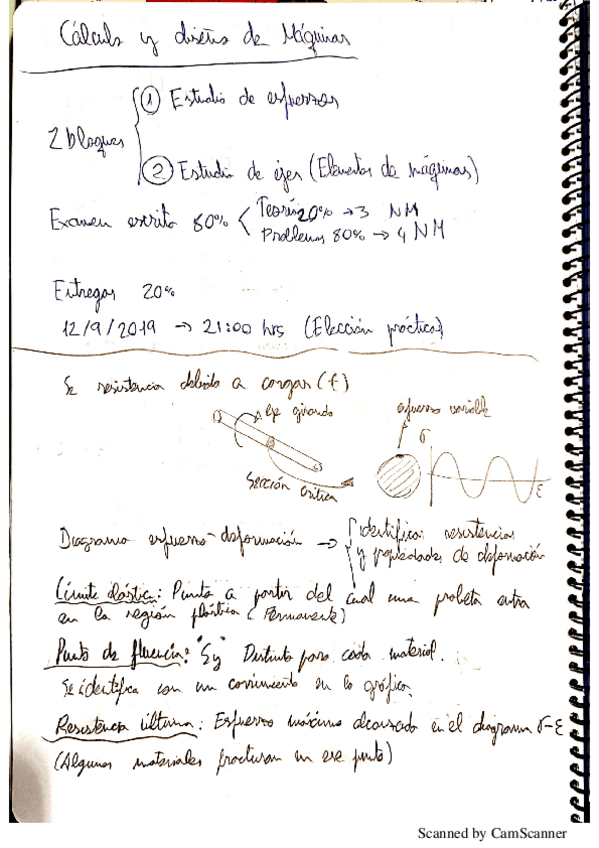 Cálculo y diseño de Máquinas
2 bloques
① Estudio de esfuerzos
② Estudio de ejes (Elementos de máquinas)
Examen escrito 80%
Teoría 20% → 3 NM
Problemas 80% → 4 NM
Entregas 20%
12/9/2019 → 21:00 hrs (Elección prácticas)
Se resistencia debido a cargas (f)
eje girando
esfuerzo variable
σ
Sección crítica
ε
Diagrama esfuerzo-deformación →
identificar resistencias
y propiedades de deformación
Límite elástico: Punto a partir del cual una probeta entra
en la región plástica (Permanente)
Punto de fluencia: "Sy" Distinto para cada material.
Se identifica con un corrimiento en la gráfica.
Resistencia última: Esfuerzo máximo alcanzado en el diagrama σ-ε
(Algunos materiales fracturan en ese punto)
Scanned by CamScanner